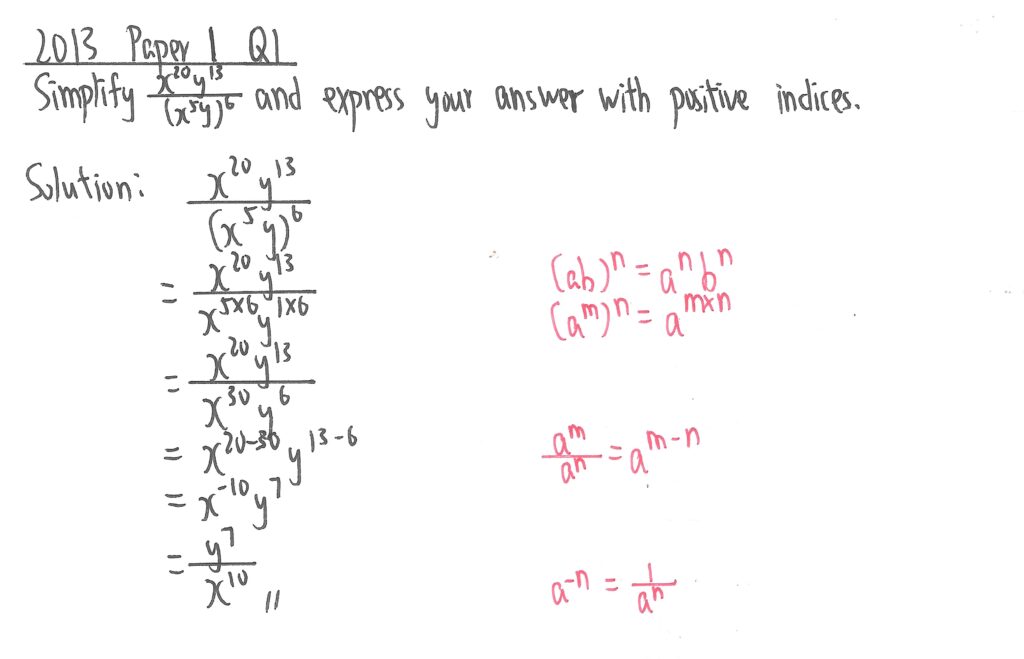 2013 Paper 1 Q1
Simplify x²⁰y¹³/(x⁵y)⁶ and express your answer with positive indices.
Solution: x²⁰y¹³/(x⁵y)⁶
= x²⁰y¹³/x⁵ˣ⁶y¹ˣ⁶
(ab)ⁿ = aⁿbⁿ
(aᵐ)ⁿ = aᵐˣⁿ
= x²⁰y¹³/x³⁰y⁶
= x²⁰⁻³⁰y¹³⁻⁶
aᵐ/aⁿ = aᵐ⁻ⁿ
= x⁻¹⁰y⁷
= y⁷/x¹⁰ //
a⁻ⁿ = 1/aⁿ